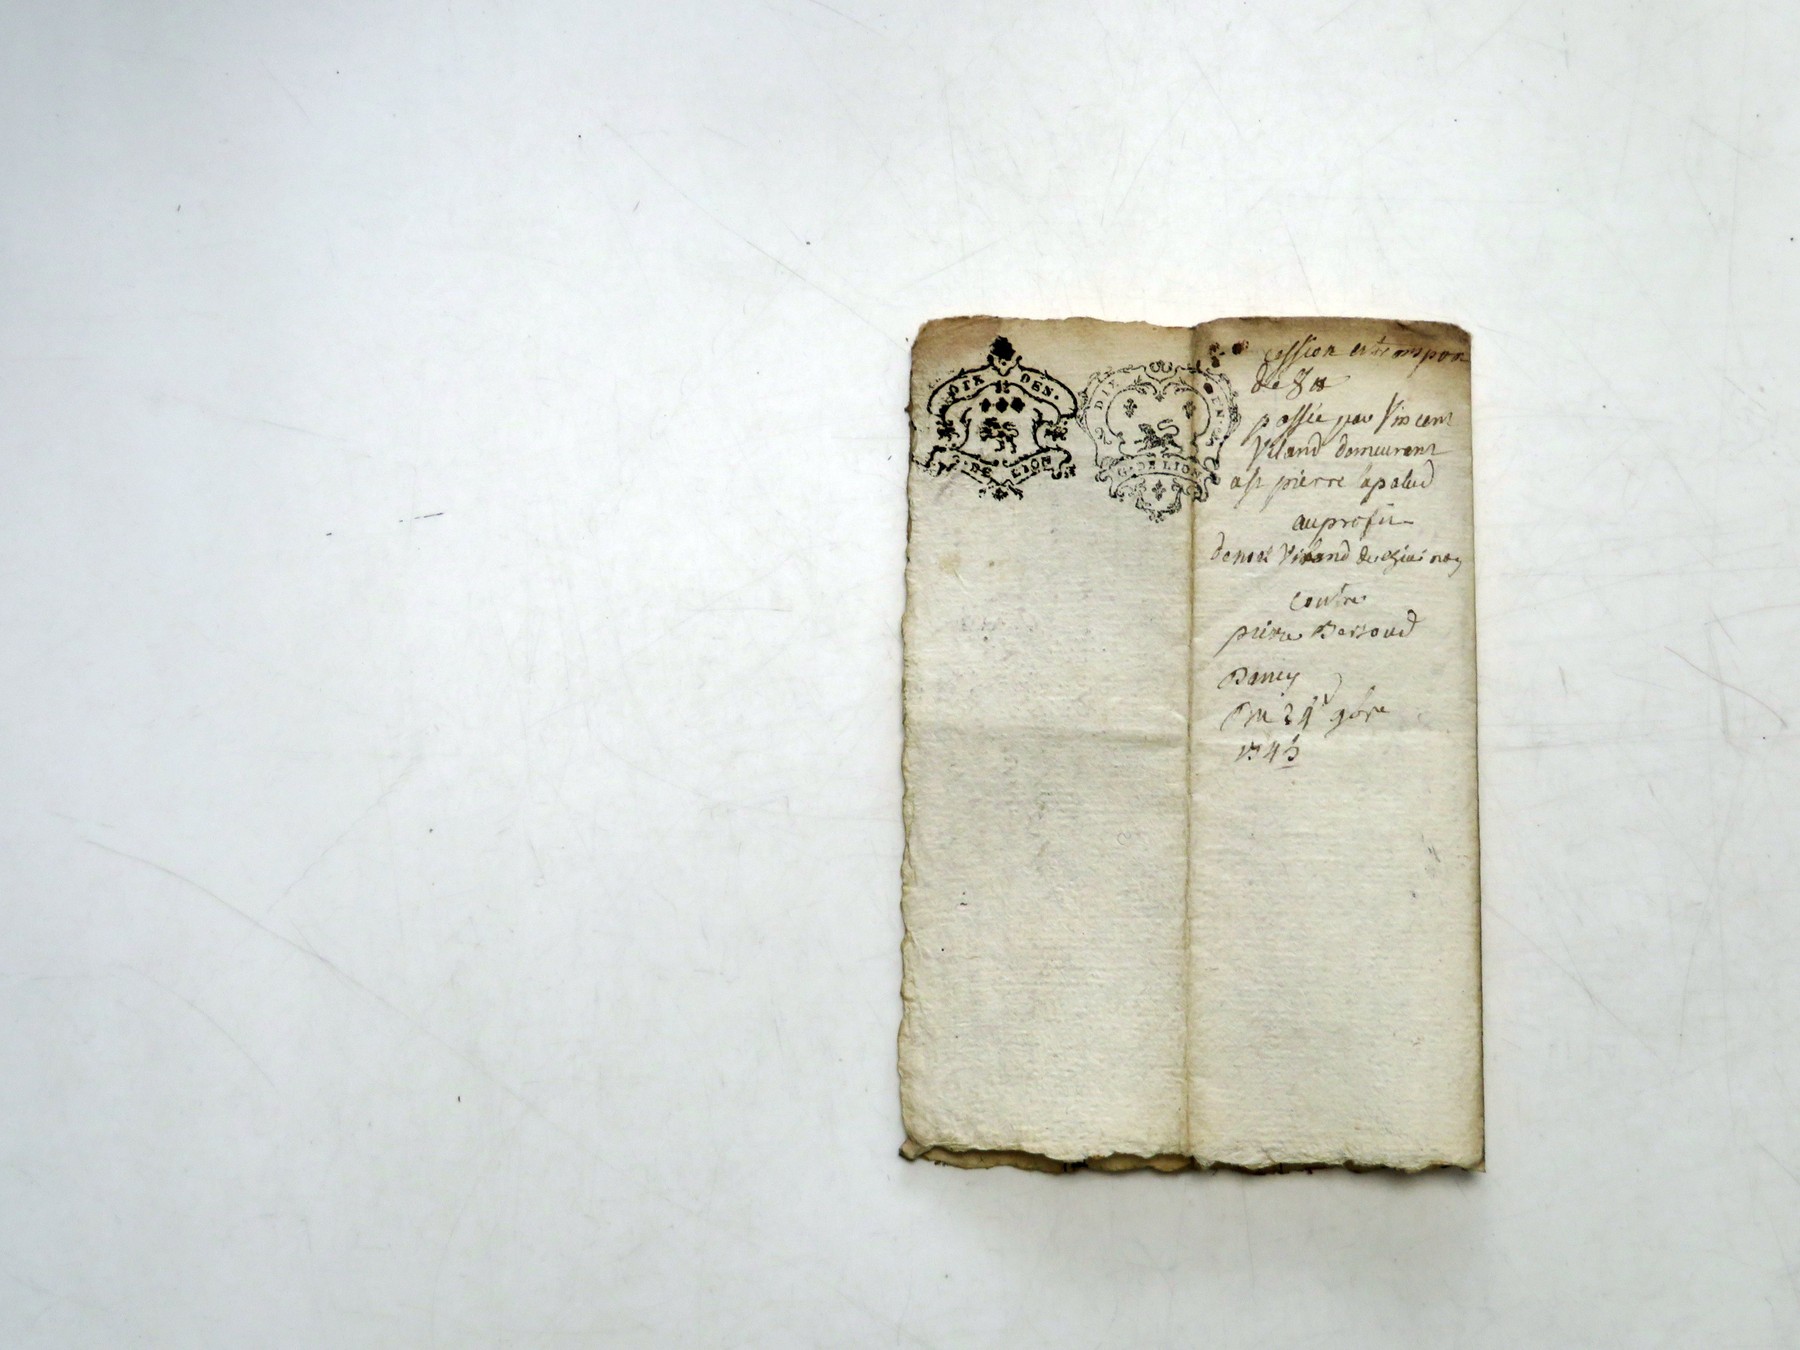 DIX DEN.
G. DE LION
DIX DEN.
G. DE LION
cession et transpor
de
passée par Vincent
Viland demeurant
a st pierre lapalud
au profit
de noel Viland de
contre
pierre Bersoud
Dancy
Du 24 9bre
1743